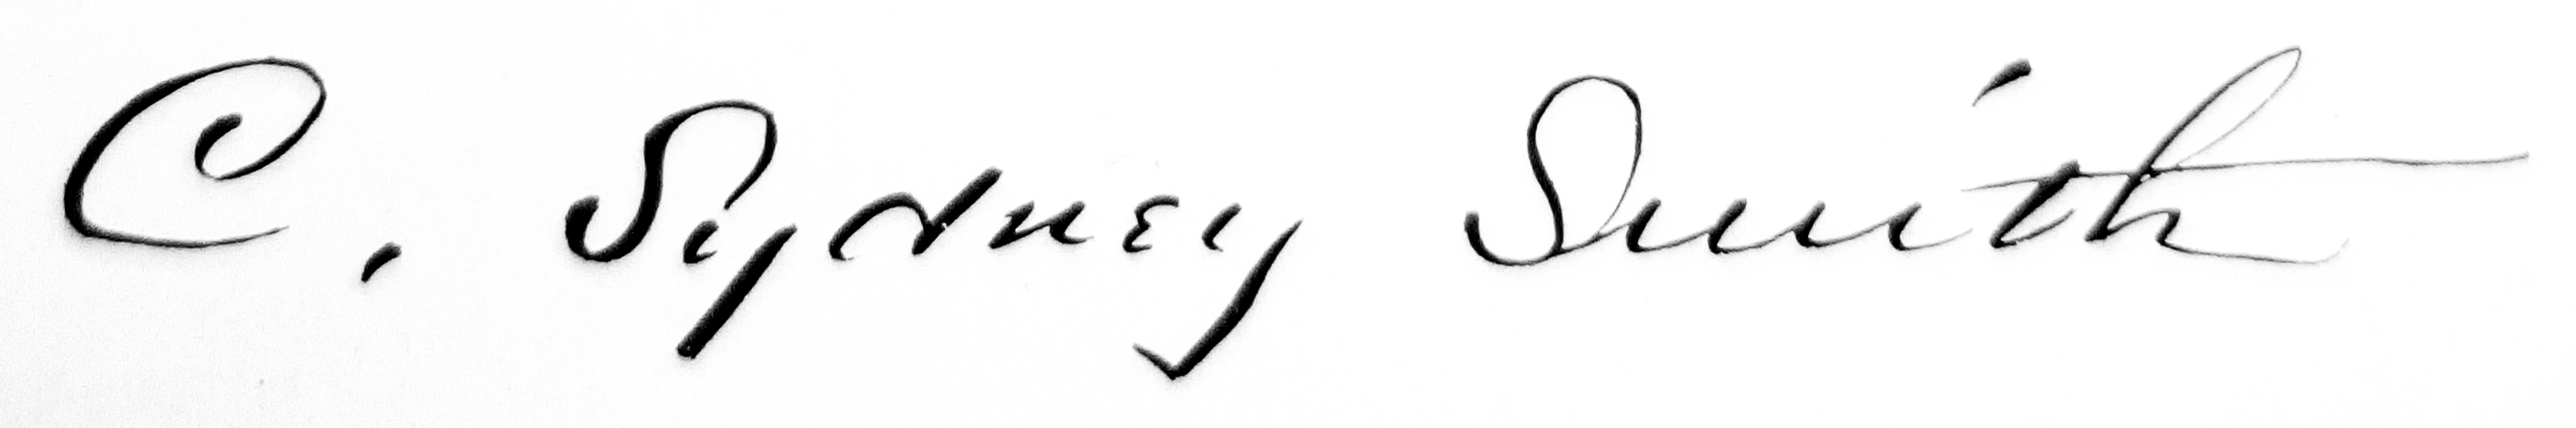 C. Sydney Smith